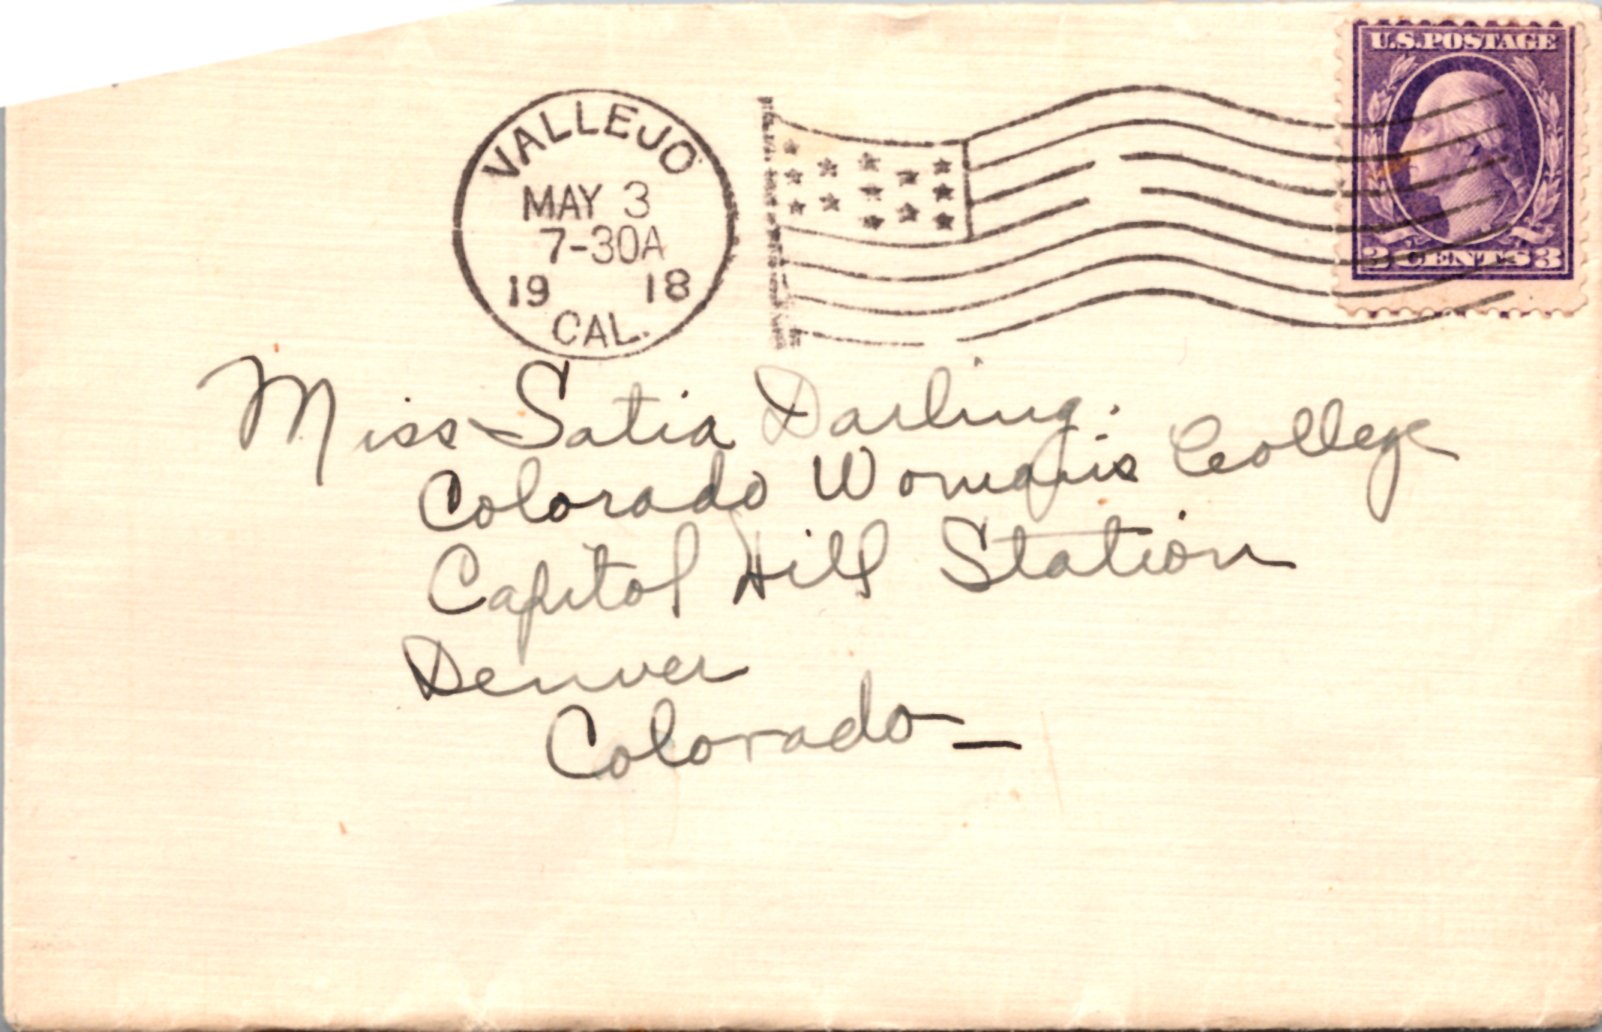 U.S.POSTAGE
3 CENTS 3
VALLEJO
MAY 3
7-30A
19 18
CAL.
Miss Satia Darling.
Colorado Woman's College
Capitol Hill Station
Denver
Colorado—